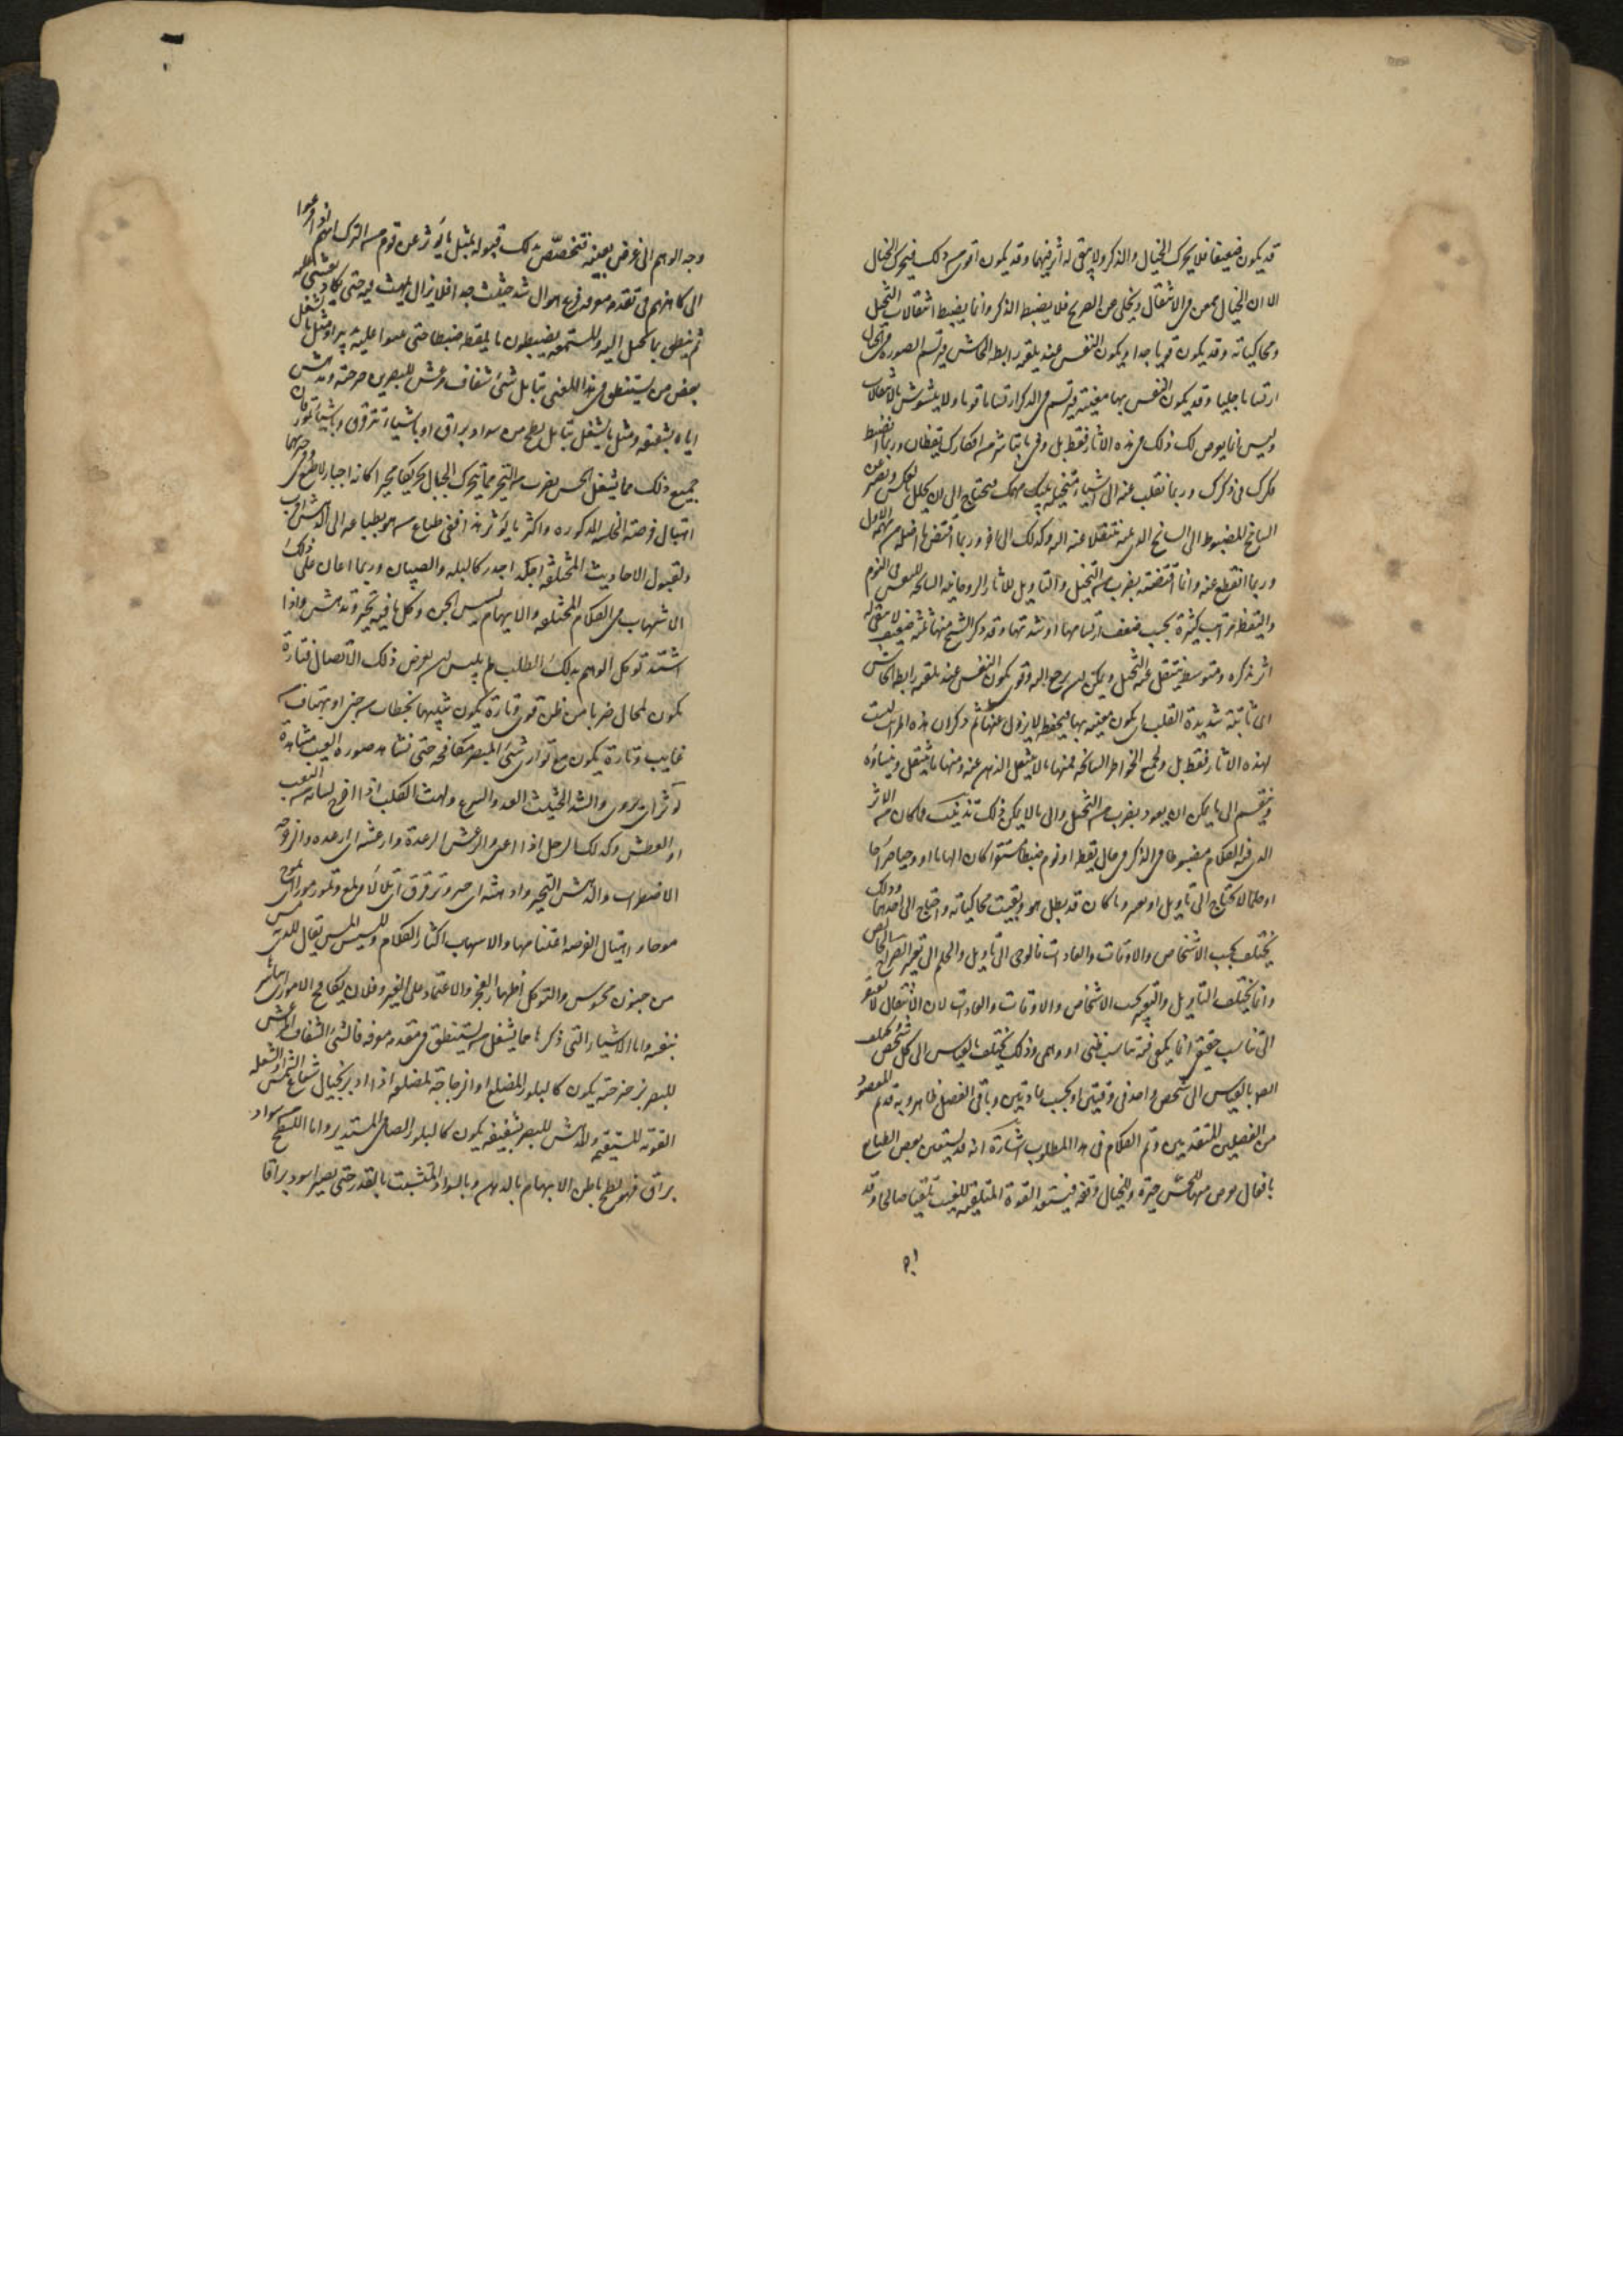 قد يكون ضعيفا فلا يحرك الخيال والذكر ولا يبقى له اثر فيهما وقد يكون اقوى من ذلك فيحرك الخيال
الا ان الخيال يمعن فى الانتقال ويخلى عن الصريح فلا يضبط الذكر وانما يضبط انتقالات التخيل
ومحاكياته وقد يكون قويا جدا ويكون النفس عند تلقيه رابط الجاش فيرتسم الصورة فى الخيال
ارتساما جليا وقد يكون النفس بها معنية فيرتسم فى الذكر ارتساما قويا ولا يتشوش بالانتقالات
وليس انما يعرض لك ذلك فى هذه الاثار فقط بل وفيما تباشره من افكارك يقظان وربما انضبط
فكرك فى ذكرك وربما نقلت عنه الى اشياء متخيلة ينسيك مهمك فيحتاج الى ان يحلل بالعكس ويصير عن
السانح المضبوط الى السانح الذى يليه منتقلا عنه اليه وكذلك الى اخر وربما اقتنص ما اضله من مهمه الاول
وربما انقطع عنه وانما اقتنصه بضرب من التخيل والتاويل للاثار الروحانية السانحة للنفس فى النوم
واليقظة مراتب كثيرة بحسب ضعف ارتسامها او شدتها وقد ذكر الشيخ منها ثلثة ضعيف لا يبقى له
اثر يذكره ومتوسط ينتقل عنه التخيل ويمكن ان يرجع اليه وقوى يكون النفس عند تلقيه رابط الجاش
اى ثابتة شديدة القلب اى يكون معنية بها فيحفظه لا يزول عنها ثم ذكر ان هذه المراتب ليست
لهذه الاثار فقط بل ولجميع الخواطر السانحة فمنها ما لا ينتقل الذهن عنه ومنها ما ينتقل وينساه
وينقسم الى ما يمكن ان يعود بضرب من التحليل والى ما لا يمكن ذلك تذنيب فما كان من الاثر
الذى فيه الكلام مضبوطا فى الذكر فى حال يقظة او نوم ضبطا مستقرا كان الهاما او وحيا صراحا
او حلما لا يحتاج الى تاويل او تعبير وما كان قد بطل هو وبقيت محاكياته احتاج الى احدهما وذلك
يختلف بحسب الاشخاص والاوقات والعادات فالوحى الى تاويل والحلم الى تعبير الصراح الخالص
وانما يختلف التاويل والتعبير بحسب الاشخاص والاوقات والعادات لان الانتقال لا يفتقر
الى تناسب حقيقى انما يكفى فيه تناسب ظنى او وهمى وذلك يختلف بالقياس الى كل شخص ويختلف
ايضا بالقياس الى شخص واحد فى وقتين او بحسب عادتين وباقى الفصل ظاهر وبه قد تم المقصود
من الفصلين المتقدمين وتم الكلام فى هذا المطلوب اشارة انه قد يستعين بعض الطبائع
بافعال يعرض منها للحس حيرة وللخيال وقفة فيستعد القوة المتلقية للغيب تلقيا صالحا وقد
وجه الوهم الى غرض بعينه فتخصص بذلك قبوله مثل ما يوثر عن قوم من الترك انهم اذا فزعوا
الى كاهنهم فى تقدمة معرفة فزع هو الى شد حثيث جدا فلا يزال يلهث فيه حتى يكاد يغشى عليه
ثم ينطق بما يخيل اليه والمستمعة يضبطون ما يلفظه ضبطا حتى يبنوا عليه تدبيرا ومثل ما يشغل
بعض من يستنطق فى هذا المعنى بتامل شىء شفاف مرعش للبصر برجرجته او مدهش
اياه بشفيفه ومثل ما يشغل بتامل لطخ من سواد براق او باشياء تترقرق وباشياء تمور فان
جميع ذلك مما يشغل الحس بضرب من التحير ومما يحرك الخيال تحريكا محيرا كانه اجبار لا طبع وفى حيرتهما
اهتبال فرصة الخلسة المذكورة واكثر ما يوثر هذا ففى طباع من هو بطباعه الى الدهش اقرب
وبقبول الاحاديث المختلطة اجدر كالبله والصبيان وربما اعان على ذلك
الاسهاب فى الكلام المختلط والايهام لمسيس الجن وكل ما فيه تحير وتدهيش واذا
اشتد توكل الوهم بذلك الطلب لم يلبث ان يعرض ذلك الاتصال فتارة
يكون لمحان ضربا من ظن قوى وتارة يكون شبيها بخطاب من جنى او بهتاف من
غايب وتارة يكون مع ترائى شىء للبصر مكافحة حتى تشاهد صورة الغيب مشاهدة
يوثر اى يروى والشد الحثيث العدو السريع ولهث الكلب اذا اخرج لسانه من التعب
او العطش وكذلك الرجل اذا اعيى والرعش الرعدة وارعشه اى ارعده والرجرجة
الاضطراب والدهش التحير وادهشه اى حيره وترقرق اى تلالأ ولمع وتمور مورا اى تموج
موجا واهتبال الفرصة اغتنامها والاسهاب اكثار الكلام ومسيس المس يقال للذى به مس
من جنون ممسوس والتوكل اظهار العجز والاعتماد على الغير وفلان يكافح الامور اى يباشرها
بنفسه واما الاشياء التى ذكرها مما يشغل من يستنطق فى تقدمة معرفة فالشىء الشفاف المرعش
للبصر برجرجته يكون كالبلور المضلع او الزجاجة المضلعة اذا ادير بحيال شعاع الشمس او الشعلة
القوية المستقيمة والمدهش للبصر بشفيفه يكون كالبلور الصافى المستدير واما اللطخ من سواد
براق فهو لطخ باطن الابهام بالدهن وبالسواد المتشبث بالقدر حتى يصير اسود براقا